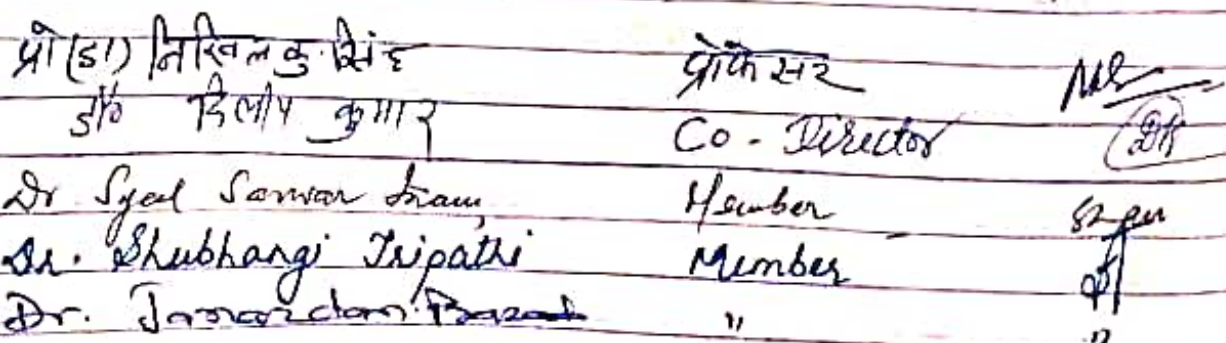 प्रो (डा) निखिल कु. सिंह प्रोफेसर
डॉ० दिलीप कुमार Co - Director
Dr Syed Sarwar Imam Member
Dr. Shubhangi Tripathi Member
Dr. Janardan Prasad "